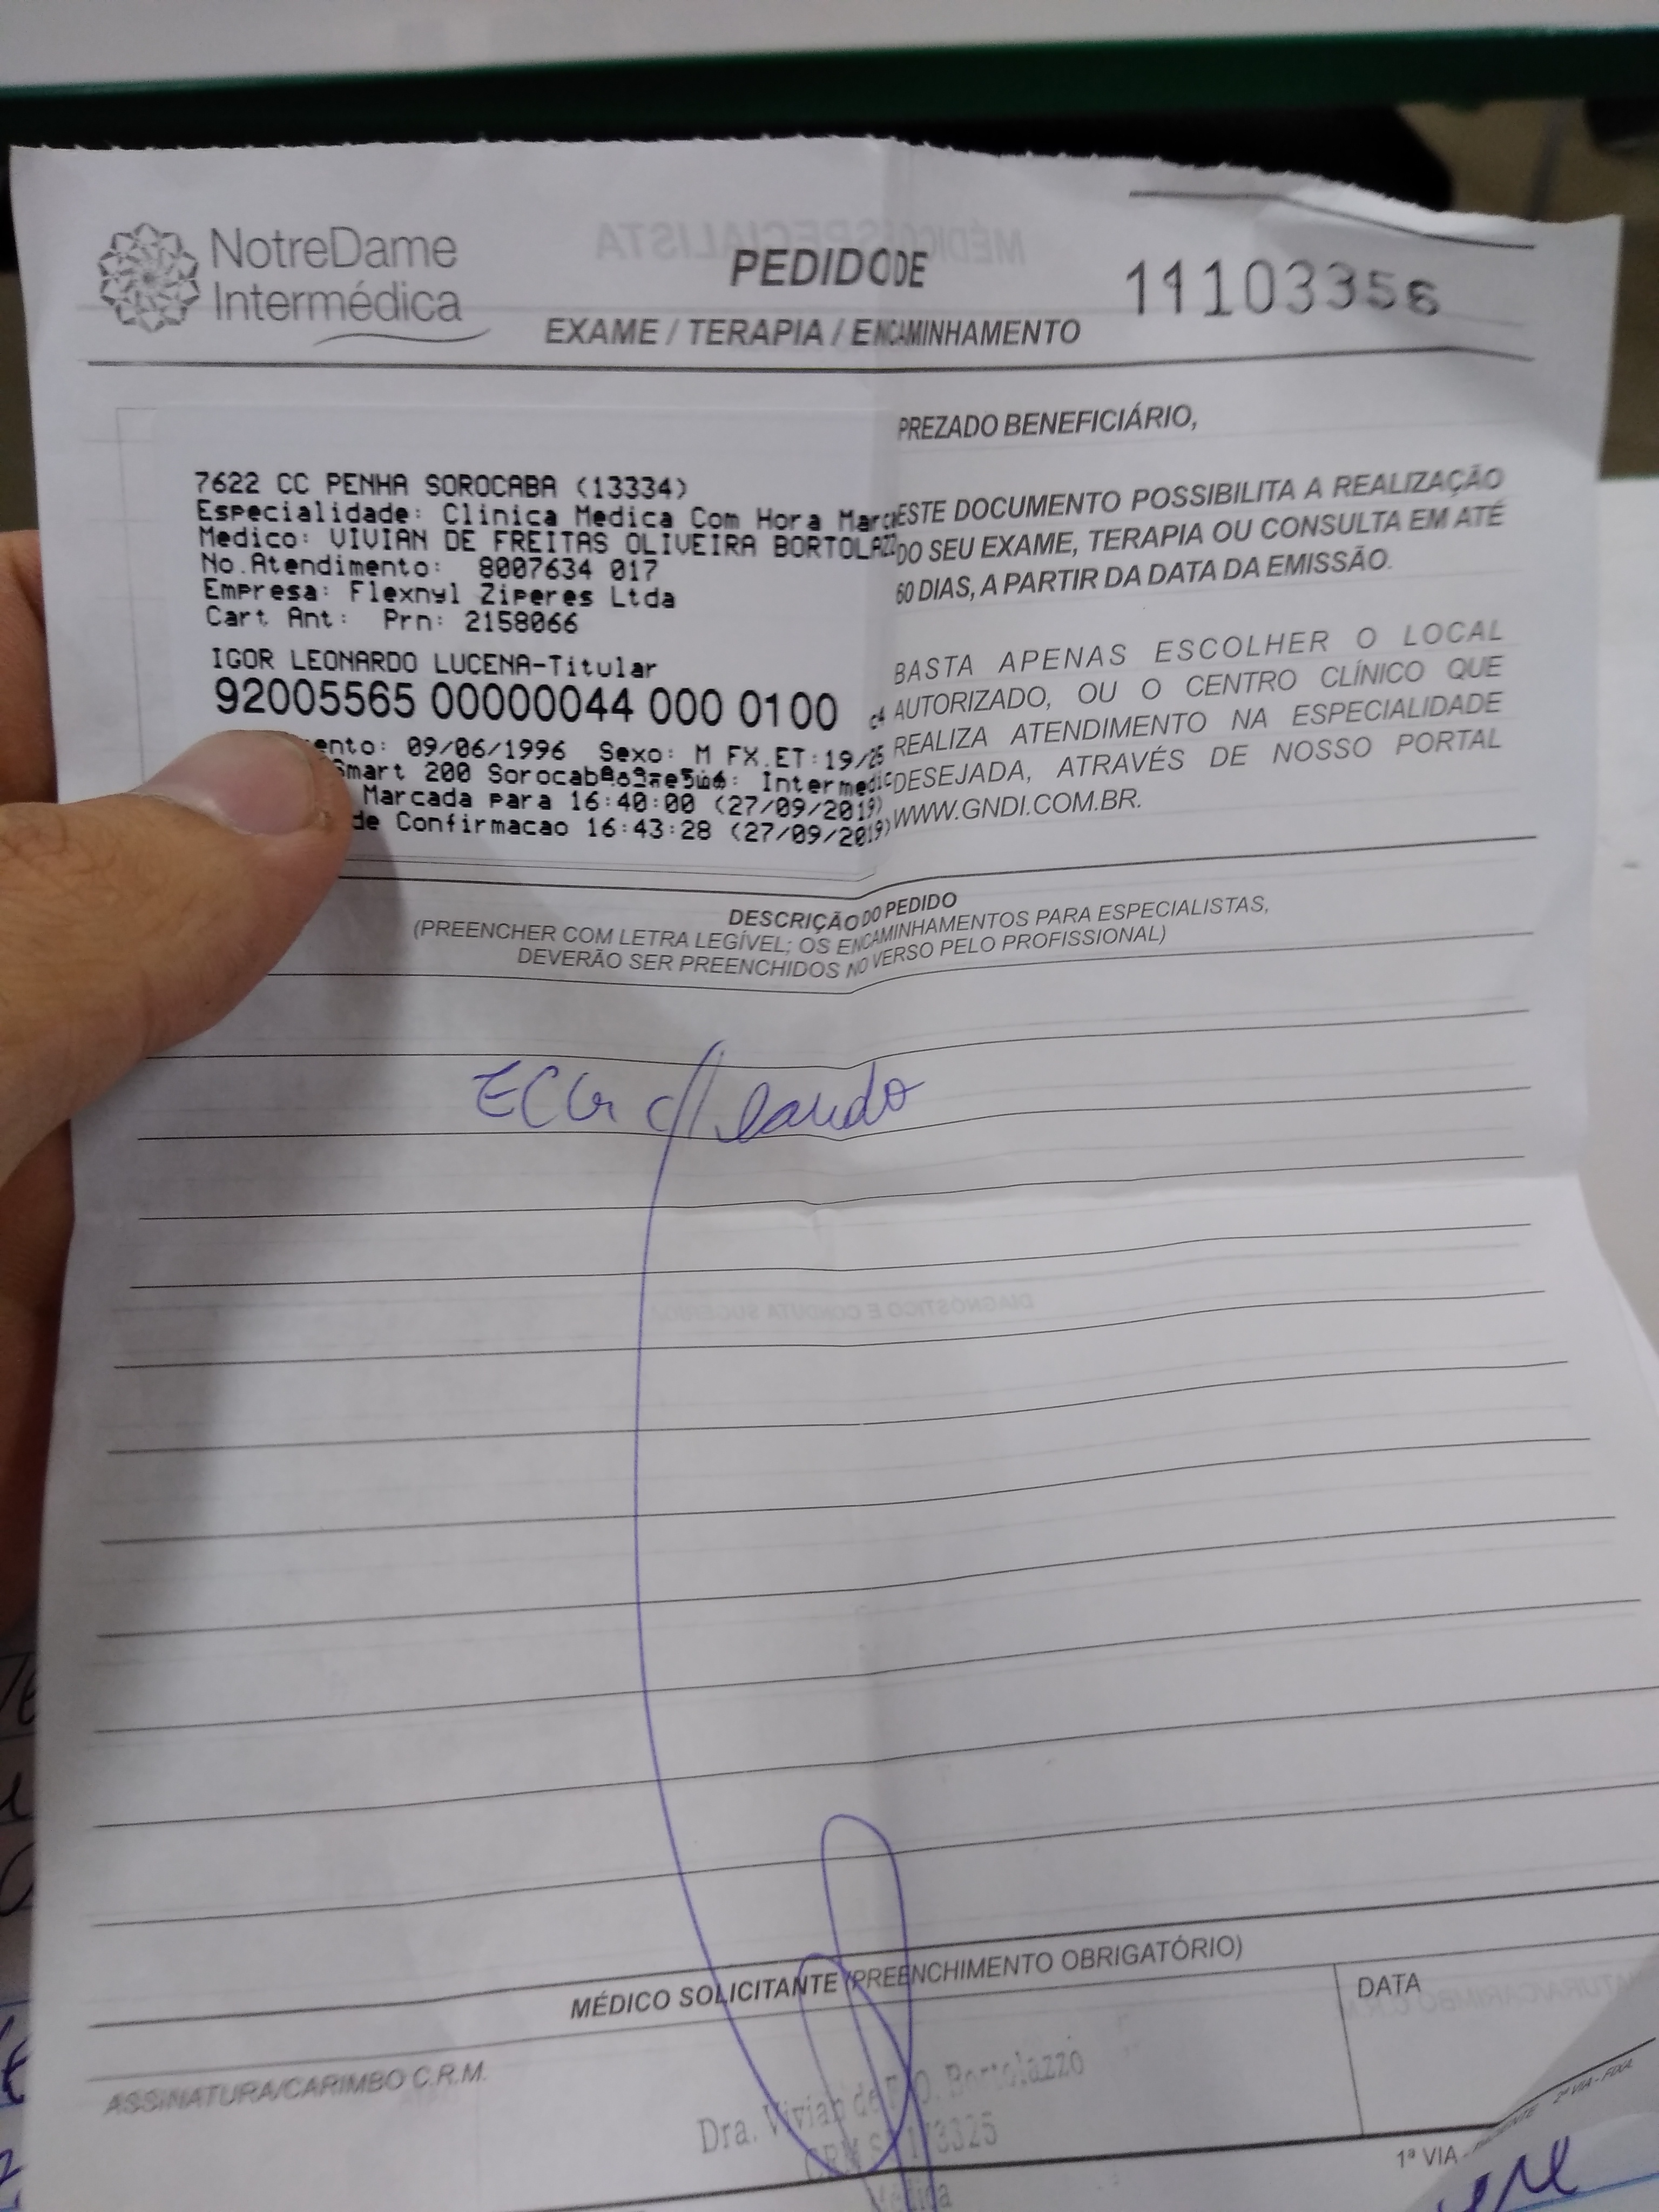 NotreDame
Intermédica
PEDIDO DE
EXAME / TERAPIA / ENCAMINHAMENTO
11103356
7622 CC PENHA SOROCABA (13334)
Especialidade: Clinica Medica Com Hora Marc
Medico: VIVIAN DE FREITAS OLIVEIRA BORTOLAZ
No.Atendimento: 8007634 017
Empresa: Flexnyl Ziperes Ltda
Cart Ant: Prn: 2158066
IGOR LEONARDO LUCENA-Titular
92005565 00000044 000 0100
ento: 09/06/1996 Sexo: M FX.ET:19/
Smart 200 Intermedic
Marcada para 16:40:00 (27/09/2019)
de Confirmacao 16:43:28 (27/09/2019)
PREZADO BENEFICIÁRIO,
ESTE DOCUMENTO POSSIBILITA A REALIZAÇÃO
DO SEU EXAME, TERAPIA OU CONSULTA EM ATÉ
60 DIAS, A PARTIR DA DATA DA EMISSÃO.
BASTA APENAS ESCOLHER O LOCAL
AUTORIZADO, OU O CENTRO CLÍNICO QUE
REALIZA ATENDIMENTO NA ESPECIALIDADE
DESEJADA, ATRAVÉS DE NOSSO PORTAL
WWW.GNDI.COM.BR.
DESCRIÇÃO DO PEDIDO
(PREENCHER COM LETRA LEGÍVEL; OS ENCAMINHAMENTOS PARA ESPECIALISTAS,
DEVERÃO SER PREENCHIDOS NO VERSO PELO PROFISSIONAL)
ECG c/ laudo
MÉDICO SOLICITANTE (PREENCHIMENTO OBRIGATÓRIO)
DATA
ASSINATURA/CARIMBO C.R.M.
Dra. Vivian de F. O. Bortolazzo
CRM
Médica
1ª VIA -
2ª VIA - FIXA